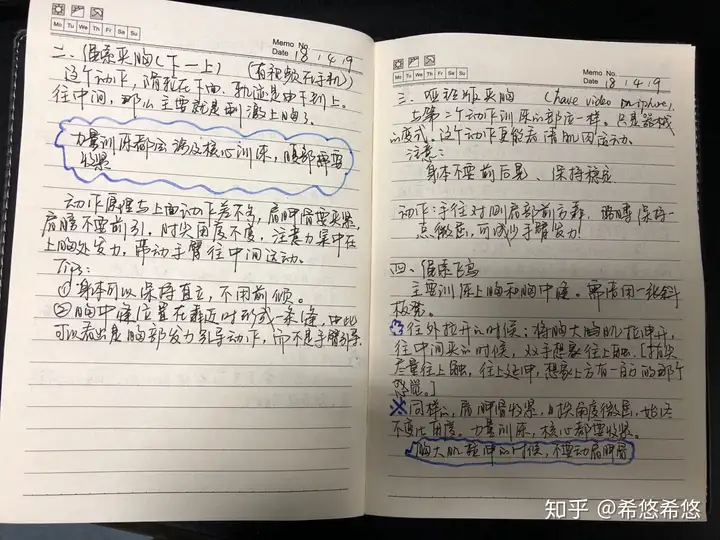 Memo No.
Mo Tu We Th Fr Sa Su
Date 18 / 4 / 9
二、绳索夹胸(下一上) (有视频在手机)
这个动作,滑轮在下面,轨迹是由下到上。
往中间,那么主要就是刺激上胸了。
力量训练都会涉及核心训练,腹部需要
收紧
动作原理与上面动作差不多,肩胛骨要夹紧,
肩膀不要前引,肘关节角度不变,注意力集中在
上胸处发力,带动手臂往中间运动。
Tips:
①身体可以保持直立,不用前倾。
②胸中缝位置在靠近时形成一条缝,由此
可以看出是胸部发力引导动作,而不是手臂引导
Memo No.
Mo Tu We Th Fr Sa Su
Date 18 / 4 / 9
三、哑铃片夹胸 (have video on iphone)
与第二个动作训练的部位一样。只是器械
的变式。这个动作更能激活肌肉运动。
注意:
身体不要前后晃、保持稳定
动作:手往对侧肩部前方靠,胳膊保持一
点微屈,可减少手臂发力!
四、绳索飞鸟
主要训练上胸和胸中缝。需借用一张斜
板凳。
往外拉开的时候:将胸大胸肌拉伸开,
往中间夹的时候,双手想象往上触。[指尖
尽量往上触,往上延伸,想象上方有一的那个
感觉。]
※同样的,肩胛骨收紧,肘关节角度微屈,始终
不变化角度。力量训练,核心都要收紧。
胸大肌拉伸的时候,不要动肩胛骨
知乎 @希悠希悠